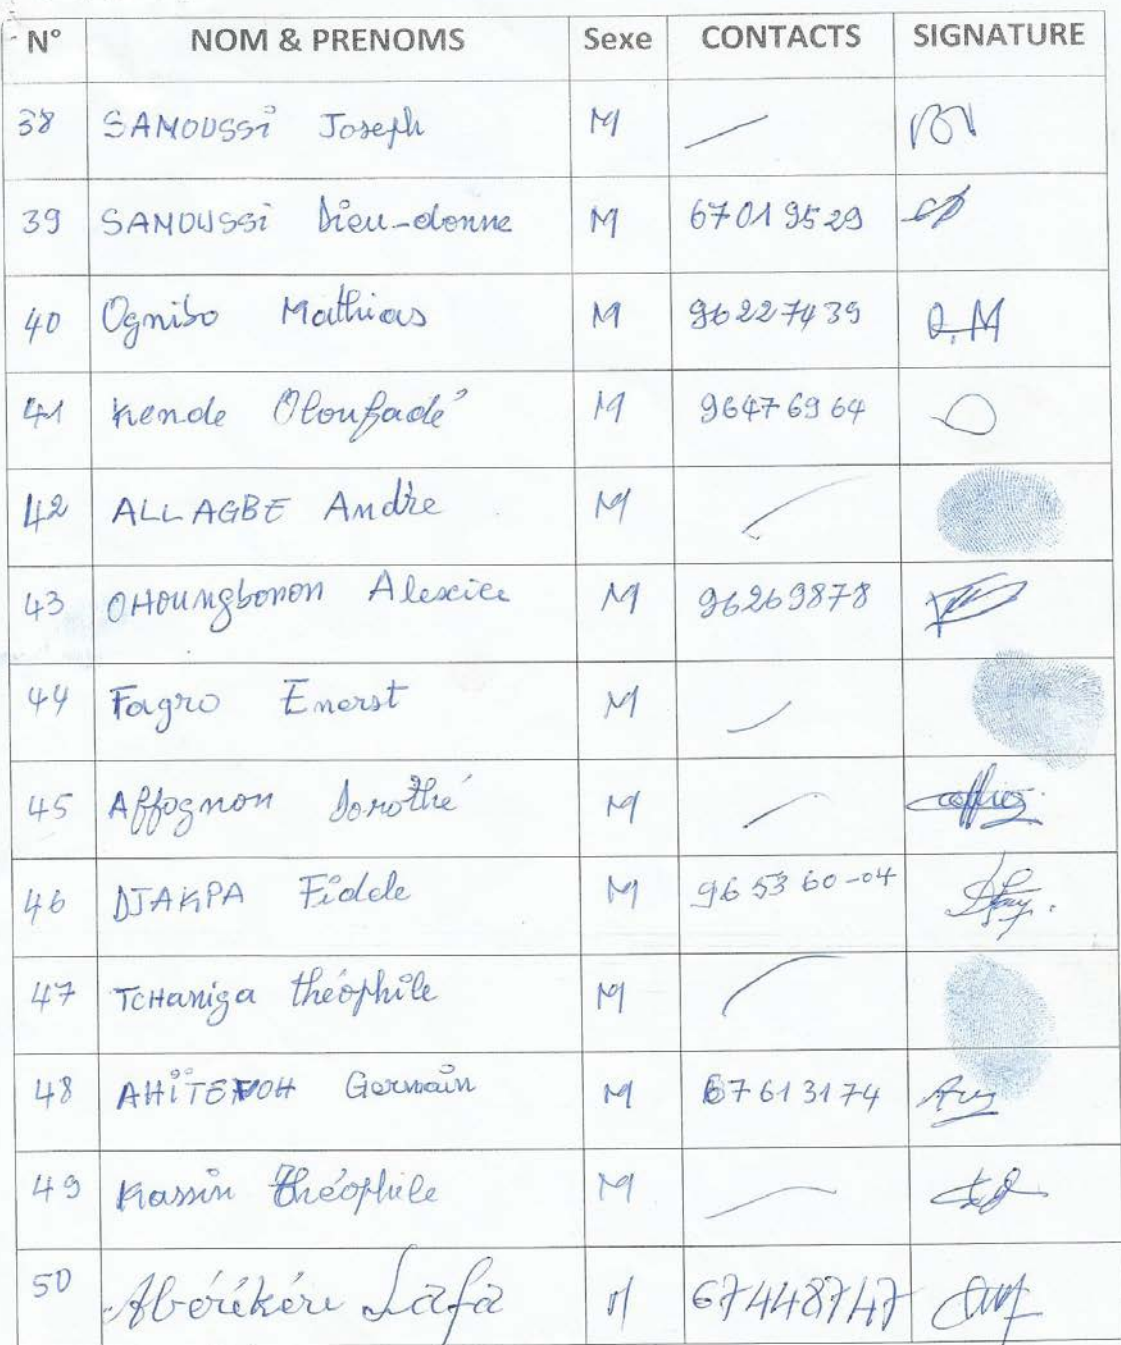 N° NOM & PRENOMS Sexe CONTACTS SIGNATURE
38 SAMOUSSi Joseph M
39 SAMOUSSi Dieu-donne M 67019529
40 Ognibo Mathias M 96227439 O.M
41 Kende Oloufadé M 96476964
42 ALLAGBE Andre M
43 OHOUNgbonon Alexice M 96269878
44 Fagro Enerst M
45 Affognon Dorothé M
46 DJAKPA Fidele M 96 53 60-04
47 TCHaniga théophile M
48 Germain M 67613174
49 Kassin théophile M
50 Abérékére Lafa M 67448747